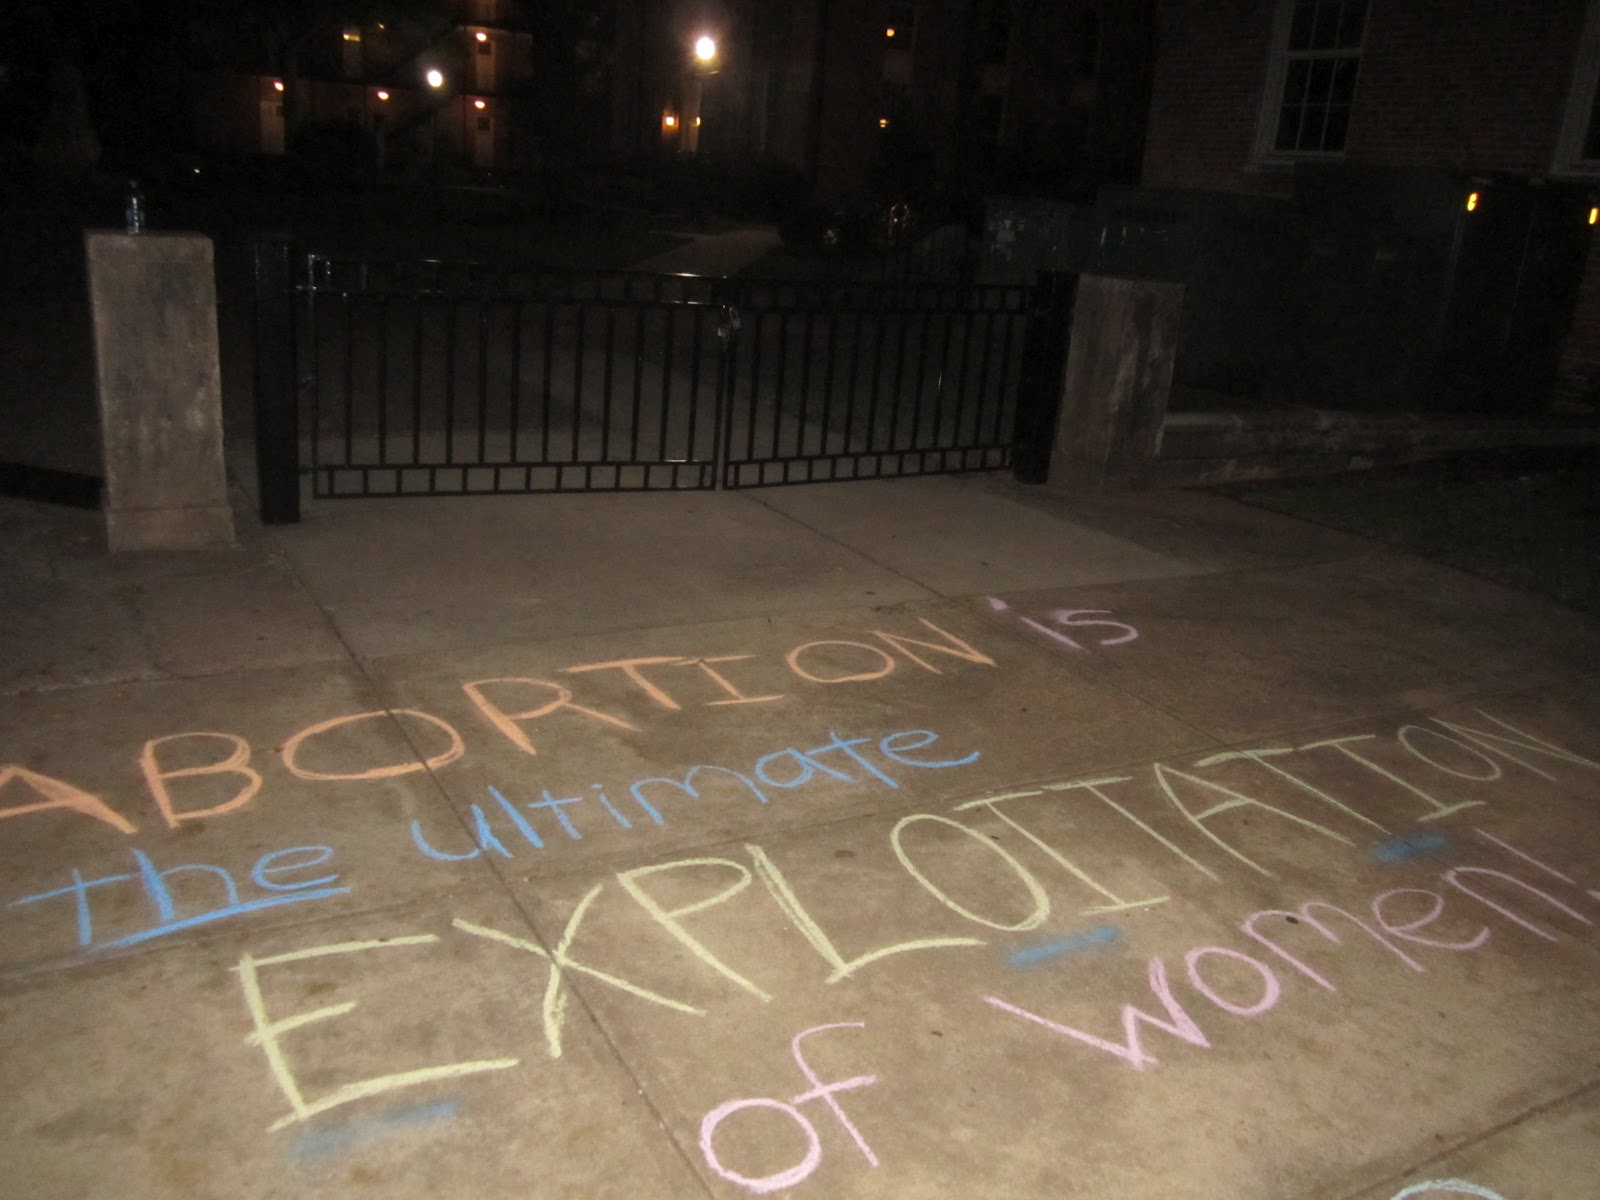 ABORTION is
the ultimate
EXPLOITATION
of women!